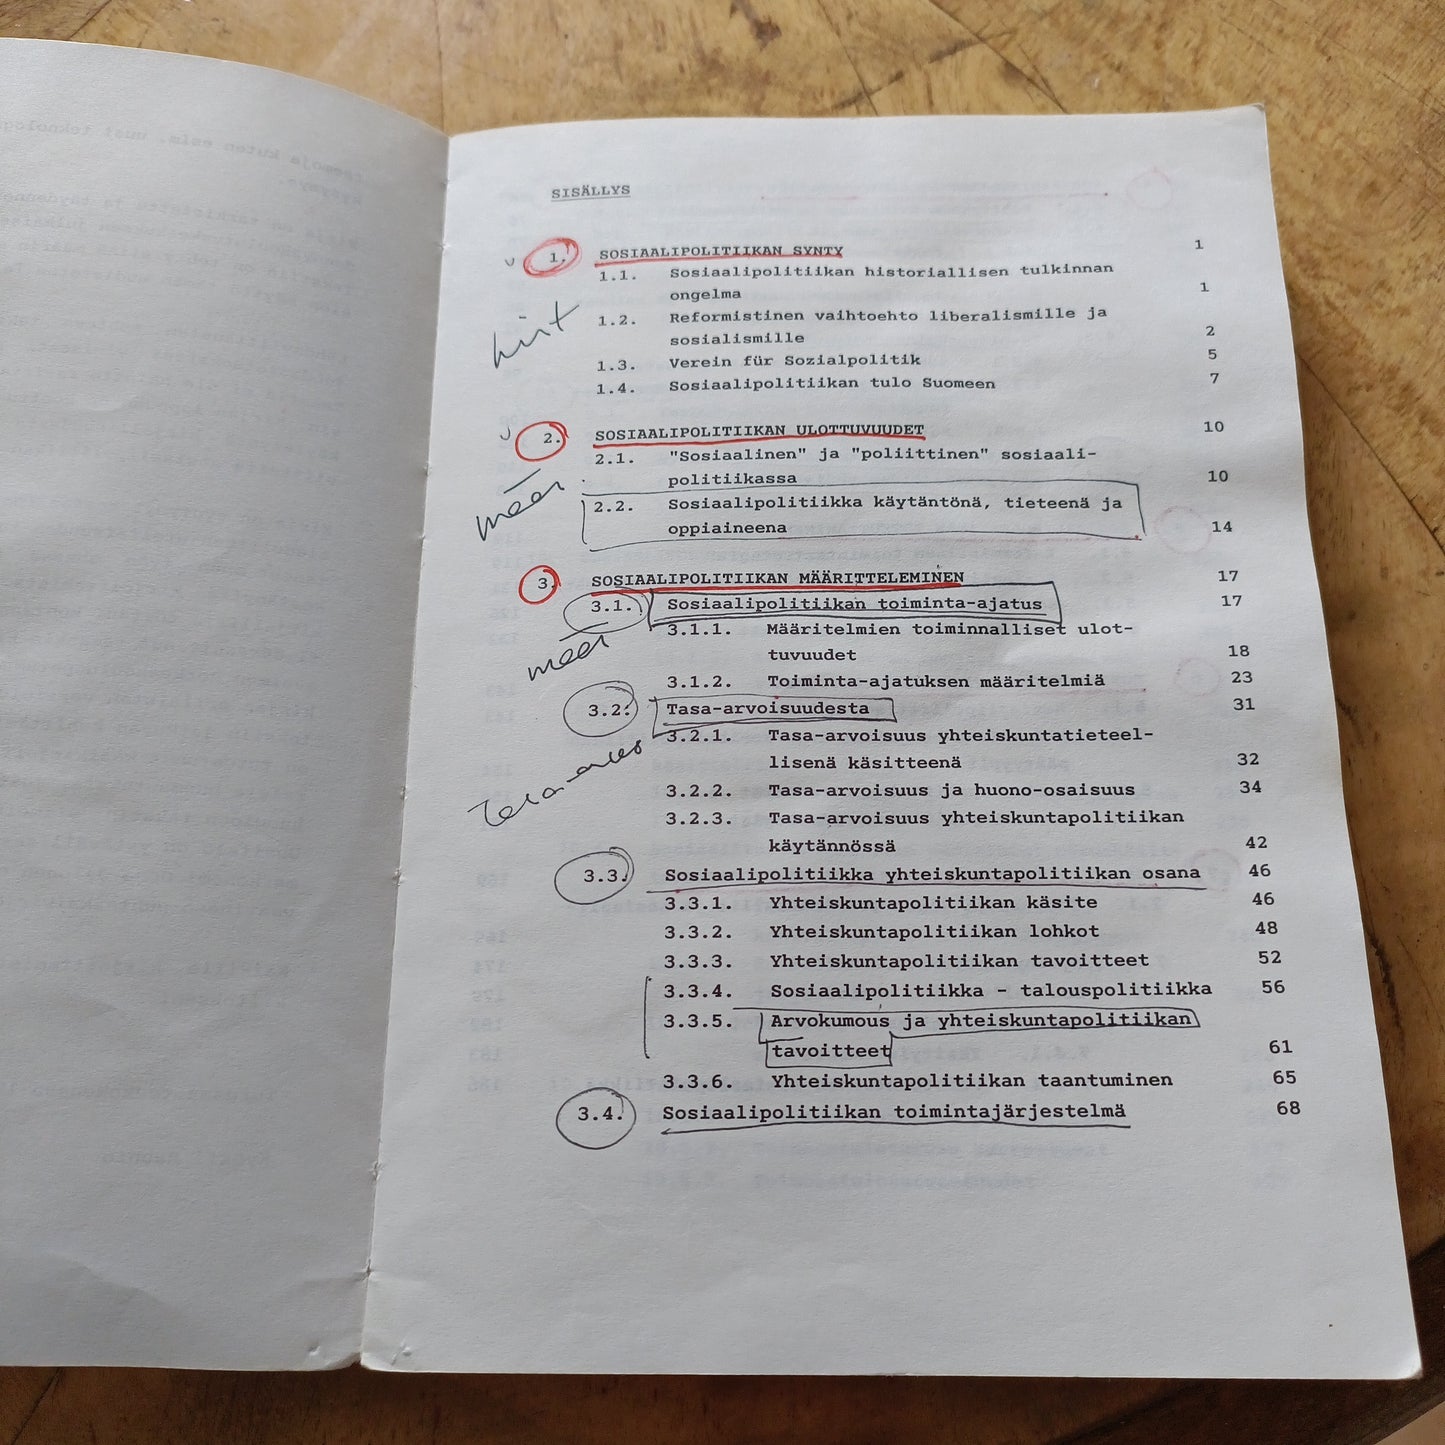 SISÄLLYS
1. SOSIAALIPOLITIIKAN SYNTY 1
1.1. Sosiaalipolitiikan historiallisen tulkinnan
ongelma 1
hist
1.2. Reformistinen vaihtoehto liberalismille ja
sosialismille 2
1.3. Verein für Sozialpolitik 5
1.4. Sosiaalipolitiikan tulo Suomeen 7
2. SOSIAALIPOLITIIKAN ULOTTUVUUDET 10
2.1. "Sosiaalinen" ja "poliittinen" sosiaali-
politiikassa 10
määr
2.2. Sosiaalipolitiikka käytäntönä, tieteenä ja
oppiaineena 14
3. SOSIAALIPOLITIIKAN MÄÄRITTELEMINEN 17
3.1. Sosiaalipolitiikan toiminta-ajatus 17
määr
3.1.1. Määritelmien toiminnalliset ulot-
tuvuudet 18
3.1.2. Toiminta-ajatuksen määritelmiä 23
3.2. Tasa-arvoisuudesta 31
3.2.1. Tasa-arvoisuus yhteiskuntatieteel-
lisenä käsitteenä 32
3.2.2. Tasa-arvoisuus ja huono-osaisuus 34
3.2.3. Tasa-arvoisuus yhteiskuntapolitiikan
käytännössä 42
3.3. Sosiaalipolitiikka yhteiskuntapolitiikan osana 46
3.3.1. Yhteiskuntapolitiikan käsite 46
3.3.2. Yhteiskuntapolitiikan lohkot 48
3.3.3. Yhteiskuntapolitiikan tavoitteet 52
3.3.4. Sosiaalipolitiikka - talouspolitiikka 56
3.3.5. Arvokumous ja yhteiskuntapolitiikan
tavoitteet 61
3.3.6. Yhteiskuntapolitiikan taantuminen 65
3.4. Sosiaalipolitiikan toimintajärjestelmä 68